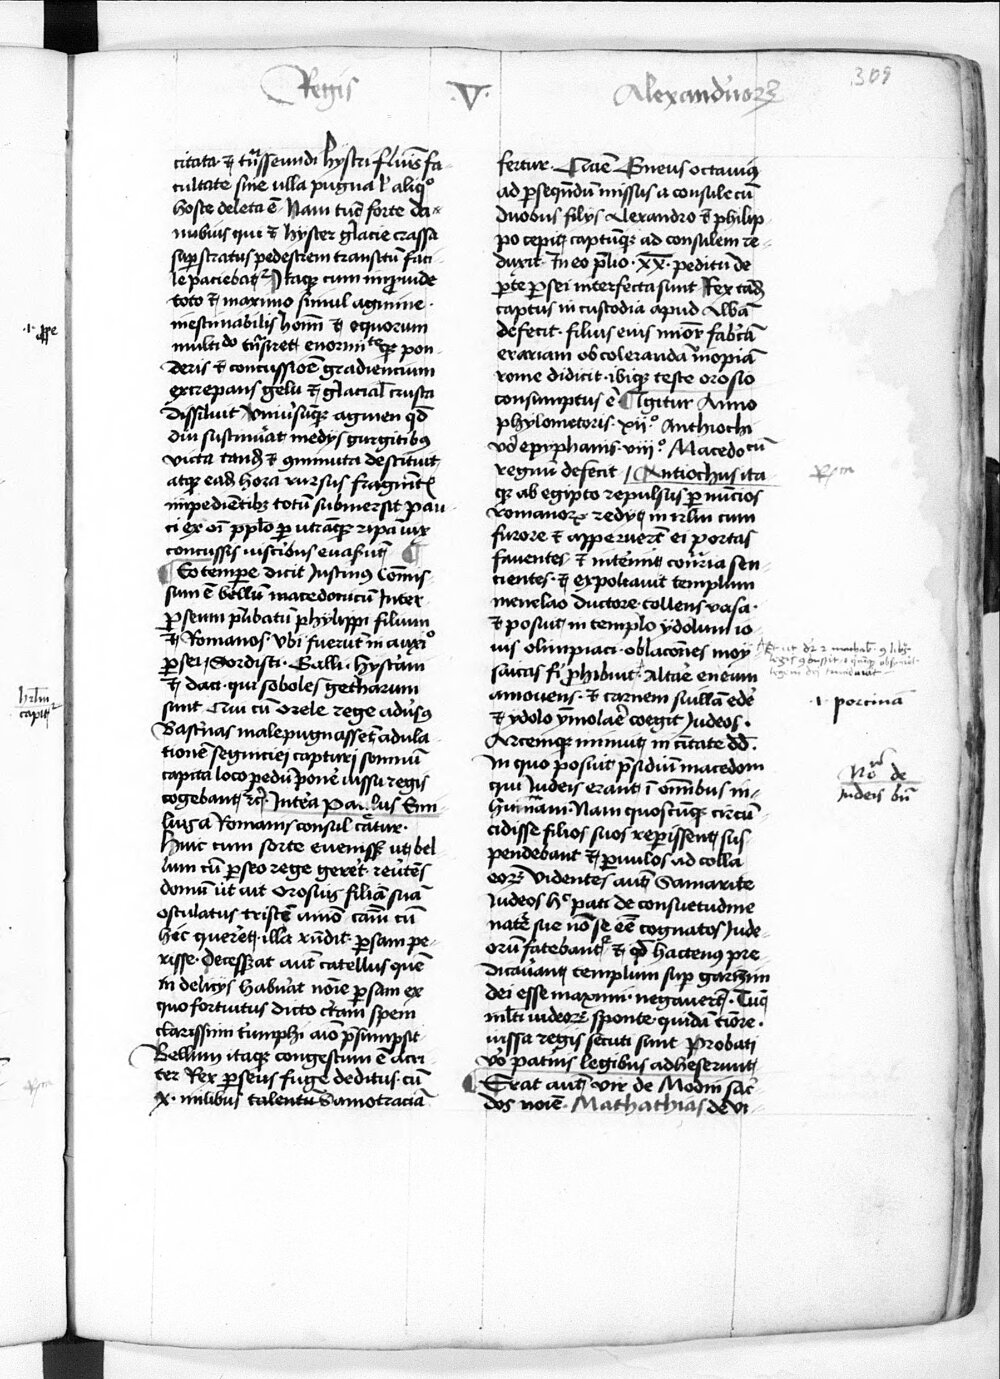 Regis
.V.
Alexandrior
309
citata. et transseundi hystri fluuis fa
cultate sine ulla pugna l aliqo
hoste deleta e. Nam tuc forte da
nubius qui et hyster glacie crassa
supstratus pedestrem transitum faci
le paciebat. Itaque cum improuide
toto et maximo simul agmine.
inestimabilis homi et equorum
multido transiret enormiteque pon
deris et concussioe gradiencium
excrepans gelu et glacial crusta
dissiluit vniuersumque agmen qd
diu sustinuat medys gurgitibus
victa tand et cominuta destituit
atque ead hora rursus fragmet
impedietibus totu submersit pau
ci ex oi pplo per utramque ripa vix
concussis visceribus euaserut
Eo tempe dicit Justinus Comis
sum e bellum macedonicum Inter
perseum prelibatu phylippi filium
et Romanos. Vbi fuerut in auxio
persei Sordisci. Galli. Hystram
et daci. qui soboles getharum
sunt Cui cu Orele rege adusus
Bastnas male pugnasset adula
tione segniciei capturi somnu
capita loco pedu pone iussu regis
cogebant rc. Intea Paulus Emi
lius a Romanis consul catur.
Huic cum sorte euenisset ut bel
lum cu perseo rege geret. reutes
domu ut ait Orosius filia sua
osculatus triste aio cam cu
hec queret. illa rndit. persam pe
risse. Decesserat aut catellus que
in delicys habuat noie persam ex
quo fortuitus dicto ctam spem
clarissimi tumphi aio presumpsit
Bellum itaque congestum e acri
ter Rex perseus fuge deditus. cu
x. milibus talentu Samotracia
fertur. Eneus octauius
ad persequendu missus a consule cu
duobus filys Alexandro et philip
po cepit captumque ad consulem re
duxit. In eo prelio. XX. peditu de
perte persei interfecta sunt Rex tad
captus in custodia apud Alba
defecit. filius eius mior fabrica
erariam ob coleranda inopia
rome didicit. ibique teste orosio
consumptus e Igitur Anno
phylometoris. xijo. Anthiochi
vo epyphanis. viijo. Macedocu
regnu defecit Antiochus ita
que ab egipto repulsus per nucios
Romanor redyt in irlm cum
furore et apperuert ei portas
fauentes. et intemit conria sen
cientes. et expoliauit templum
menelao ductore. tollens vasa.
et posuit in templo ydolum io
uis olimpiaci. oblacones moy
saicas fi prohibuit. Altare eneum
amouens. et carnem suilla ede
et ydolo ymolae coegit Judeos.
Arcemque inimut in ciuitate dd.
In quo posuit presidiu macedom
qui Judeis erant i omibus in
humani. Nam quoscumque circu
cidisse filios suos reperissent sus
pendebant et paruulos ad colla
eor Videntes aut Samarite
Judeos h pati de consuetudine
nate sue no se ee cognatos Jude
oru fatebant et qd hactenus pre
dicauant templum sup garizim
dei esse maximi. negauert. Tuc
multi iudeor sponte. quida timore.
iussa regis secuti sunt Probati
vo patriis legibus adheserunt
Erat aut vir de Modin sac
dos noie. Mathathias de vi
.i. porcina
No de
Judeis bn